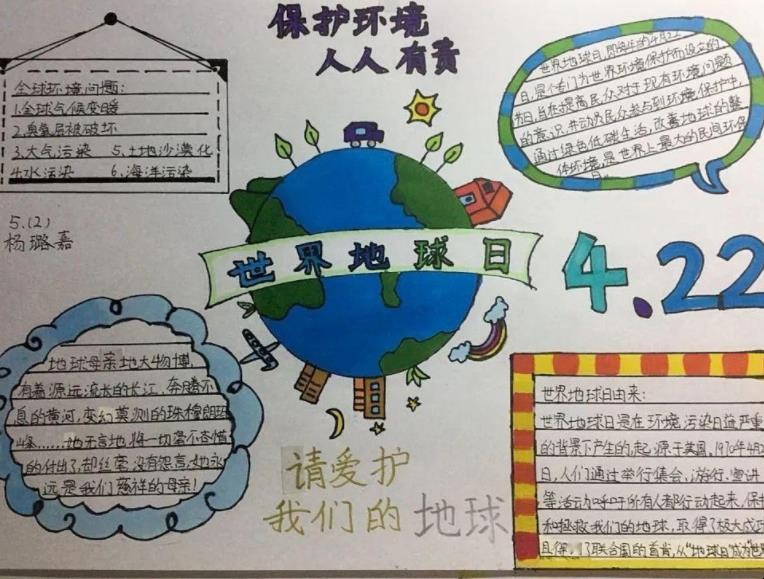 保护环境
人人有责
全球环境问题:
1.全球气候变暖
2.臭氧层被破坏
3.大气污染 5.土地沙漠化
4.水污染 6.海洋污染
5.(2)
杨璐嘉
世界地球日,即每年的4月22
日,是个专门为世界环境保护而设立的
节日,旨在提高民众对于现有环境问题
的意识,并动员民众参与到环境保护中,
通过绿色低碳生活,改善地球的整
体环境,是世界上最大的民间环保
世界地球日
4.22
地球母亲地大物博,
有着源远流长的长江,奔腾不
息的黄河,变幻莫测的珠穆朗玛
峰……她无言地将一切毫不吝惜
的付出了,却丝毫没有怨言,她永
远是我们慈祥的母亲!
请爱护
我们的地球
世界地球日由来:
世界地球日是在环境污染日益严重
的背景下产生的,起源于美国,1970年4月2
日,人们通过举行集会、游行、宣讲
等活动呼吁所有人都行动起来,保护
和拯救我们的地球,取得了极大成功
了联合国的首肯,从"地球日"成为"世界